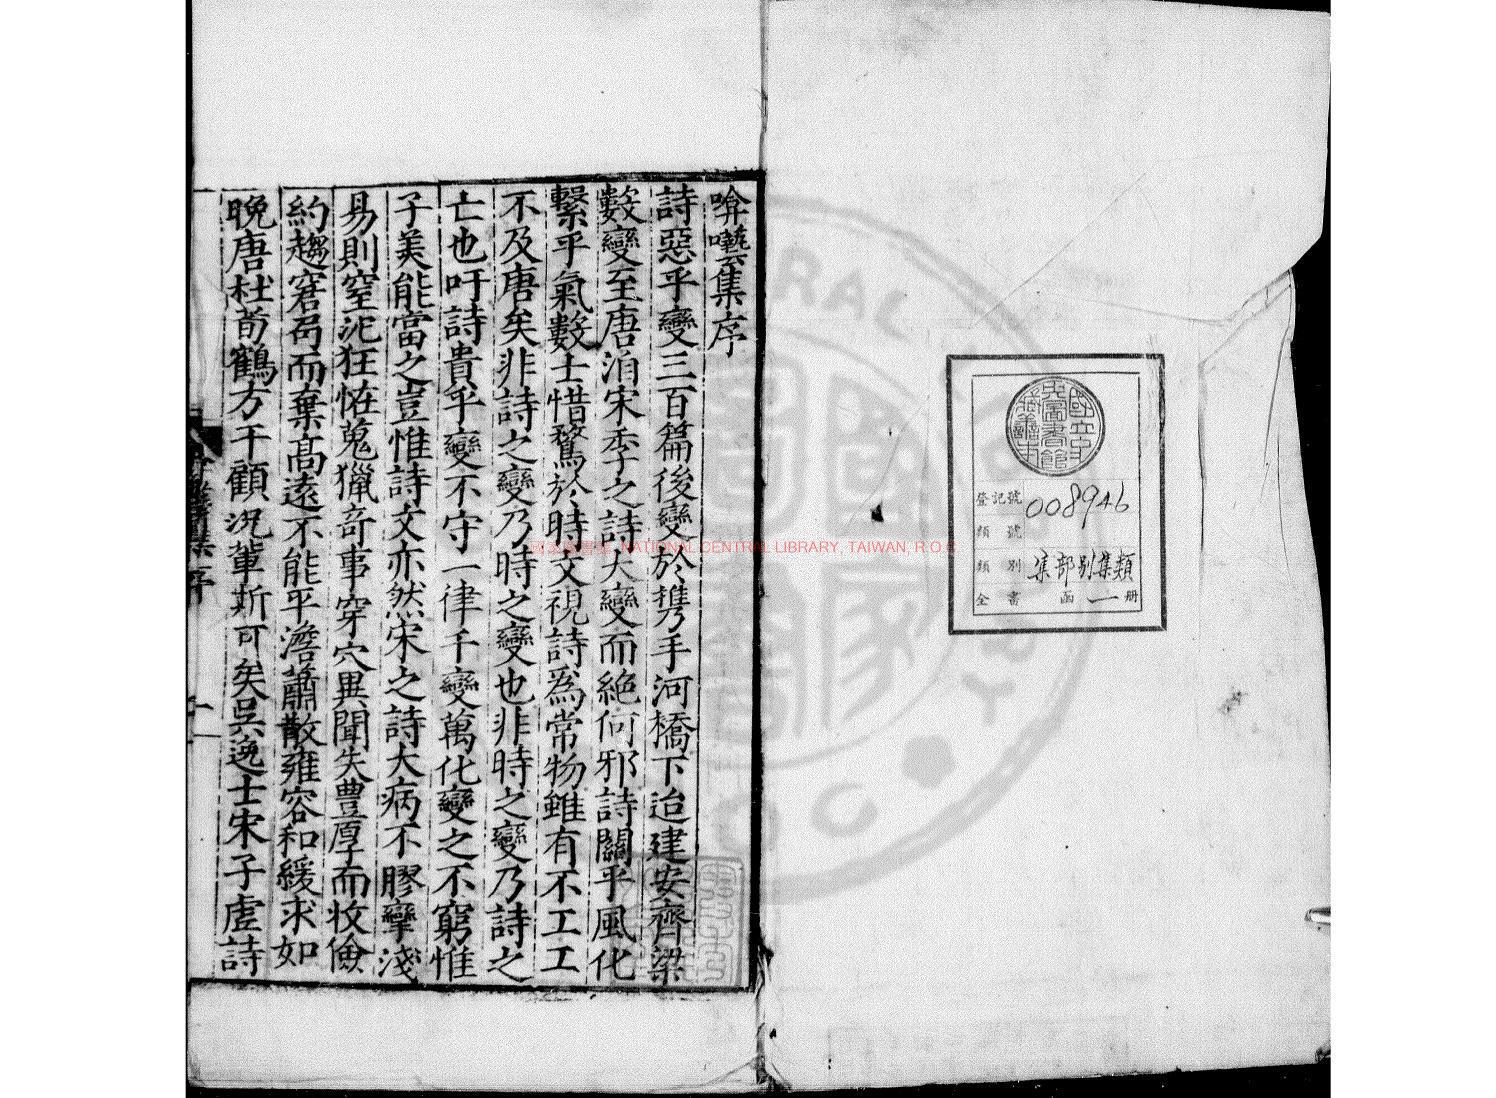 唅囈集序
詩惡乎變三百篇後變於携手河橋下迨建安齊梁
數變至唐洎宋季之詩大變而絕何邪詩關乎風化
繫乎氣數士惜騖於時文視詩為常物雖有不工工
不及唐矣非詩之變乃時之變也非時之變乃詩之
亡也吁詩貴乎變不守一律千變萬化變之不窮惟
子美能當之豈惟詩文亦然宋之詩大病不膠攣淺
易則窒沱狂恠蒐獵奇事穿穴異聞失豊厚而收儉
約趨窘局而棄髙遠不能平澹蕭散雍容和緩求如
晚唐杜荀鶴方干顧況軰斯可矣吳逸士宋子虛詩
國立中央圖書館藏善本
登記號 008946
類號
類別 集部別集類
全書 函一冊
國家圖書館, NATIONAL CENTRAL LIBRARY, TAIWAN, R.O.C